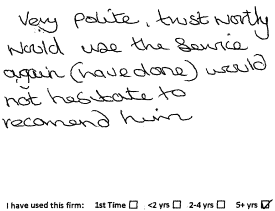 Very polite, trust worthy
Would use the Service
again (have done) would
not hesitate to
recomend him
I have used this firm: 1st Time ☐ <2 yrs ☐ 2-4 yrs ☐ 5+ yrs ☑